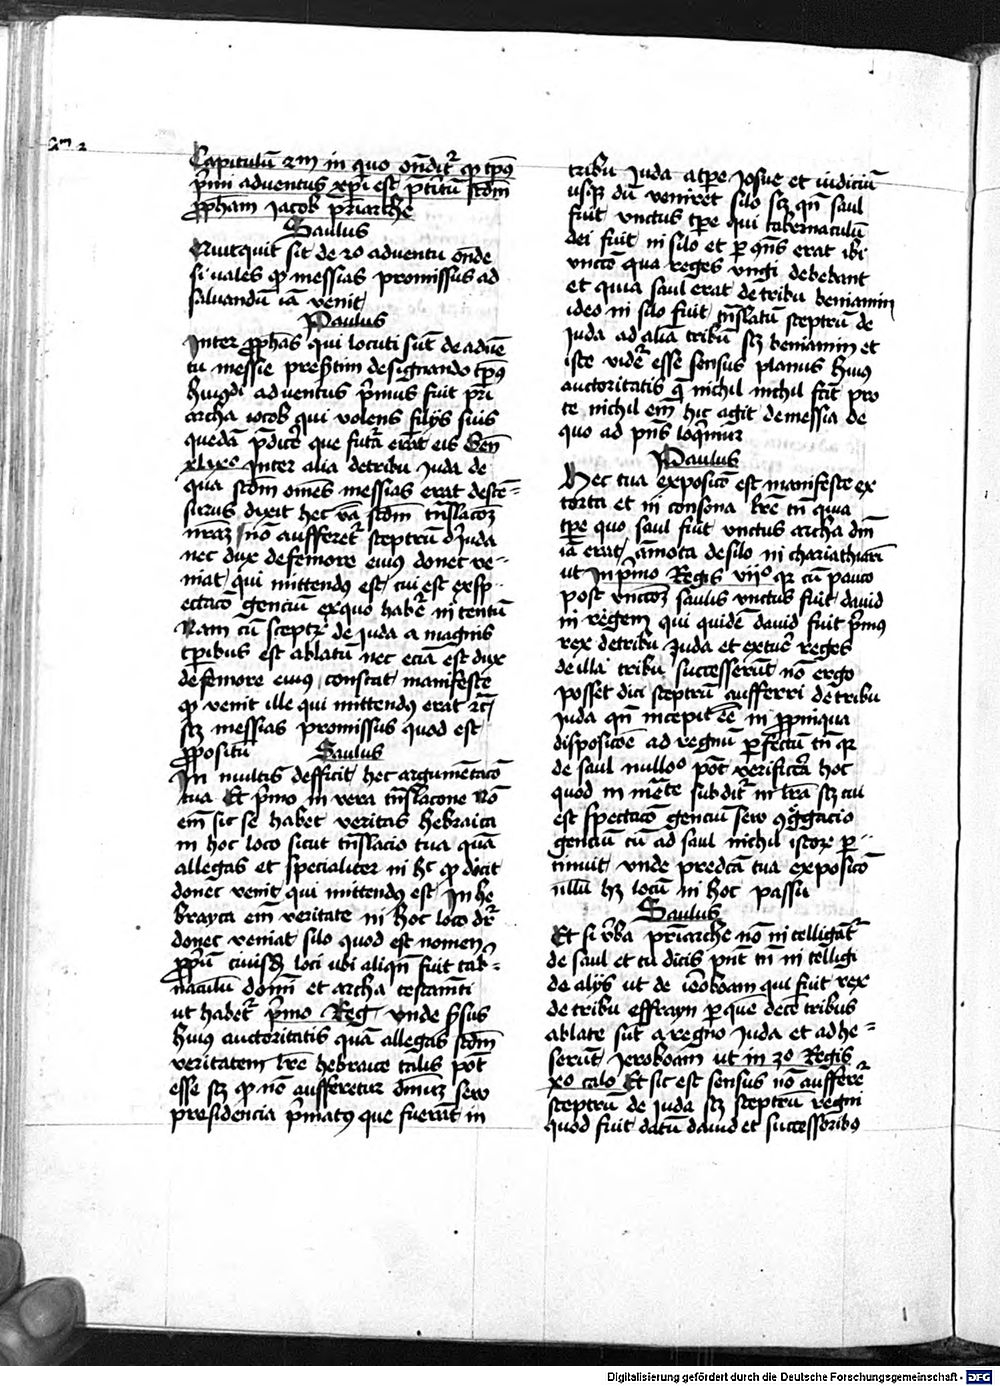 2m 2
Capitulū 2m in quo ōnditr̄ qp tp̄us
p̄mi adventus xp̄i est p̄teritū scd̄m
ꝓpham Jacob pr̄iarche
Saulus
Quitquit sit de 2o adventu onde
si vales qp messias promissus ad
salvandū iā venit
Paulus
Inter ꝓphas qui locuti sūt de advē
tu messie presertim designando tp̄us
huiusmodi adventus p̄mus fuit pr̄i
archa iacob qui volens filijs suis
quedā p̄dicere que futura erāt eis Gen̄
xlixo Inter alia de tribu Juda de
qua scd̄m om̄es messias erat descē-
surus dixit hec vᵃ scd̄m trn̄slacōz
nr̄az nō aufferetr̄ sceptrū d Juda
nec dux de femore eius donec ve-
niat qui mittendus est cui est exsp
ectacō genciū ex quo habetr̄ intentū
Nam cū sceptrū de Juda a magnis
tp̄ribus est ablatū nec eciā est dux
de femore eius constat manifeste
qp venit ille qui mittendus erat rc̄
scz messias promissus quod est
ꝓpositū Saulus
In multis defficit hec argumētacō
tua Et p̄mo in vera trn̄slacone Nō
em̄ sic se habet veritas hebraica
in hoc loco sicut trn̄slacio tua quā
allegas et specialiter in hc qp dicit
donec venit qui mittendus est In he
brayca em̄ veritate in hoc loco dr̄
donec veniat silo quod est nomen
ꝓpriū cuiusdā loci ubi aliqn̄ fuit tab-
naculū domī et archa testamēti
ut habetr̄ p̄mo Reg unde sēsus
huius auctoritatis quā allegas scd̄m
veritatem lr̄e hebraice talis pōt
esse scz qp nō aufferetur dominiuz sew
presidencia p̄matus que fuerāt in
tribu Juda a tp̄e Josue et iudiciū
usq̄ dū veniret silo scz qn̄ saul
fuit unctus tp̄e qui tabernaculū
dei fuit in silo et per q̄ns erat ibi
unctō qua reges ungi debebant
et quia saul erat de tribu beniamin
ideo in silo fuit trn̄slatū sceptrū de
Juda ad aliā tribū scz beniamin et
iste videtr̄ esse sensus planus huius
auctoritatis q̄ nichil nichil fc̄it pro
te nichil em̄ hic agit de messia de
quo ad p̄ns loq̄mur
Paulus
Hec tua exposicō est manifeste ex
torta et in consona lr̄e tn̄ quia
tp̄e quo saul fuit unctus archa dn̄i
iā erat āmota de silo in chariathiari
ut In p̄mo Regis vijo qr cū pauco
post unctōz saulis unctus fuit david
in regem qui quidē david fuit p̄mus
rex de tribu Juda et extūc reges
de illa tribu successerūt nō ergo
posset dici sceptrū aufferri de tribu
Juda qn̄ incepit ēē in ꝓpinqua
disposicōe ad regnū perfectū tn̄ qr
de saul nulloo pōt verificari hoc
quod in mēte subditr̄ in lr̄a scz cui
est spectacō genciū sew cōgregacio
genciū cū ad saul nichil istorz per-
tinuit unde predcā tua exposicō
nllū hz locū in hoc passu
Saulus
Et si vr̄ba pr̄iarche nō intelligātr̄
de saul et tu dicis p̄nt tn̄ intelligi
de alijs ut de ieroboam qui fuit rex
de tribu effrayn per quē decē tribus
ablate sūt a regno Juda et adhe-
serūt Jeroboam ut in 3o Regis
xo calo Et sic est sensus nō aufferetr̄
sceptrū de Juda scz sceptrū regni
quod fuit datū david et successoribus
Digitalisierung gefördert durch die Deutsche Forschungsgemeinschaft - DFG